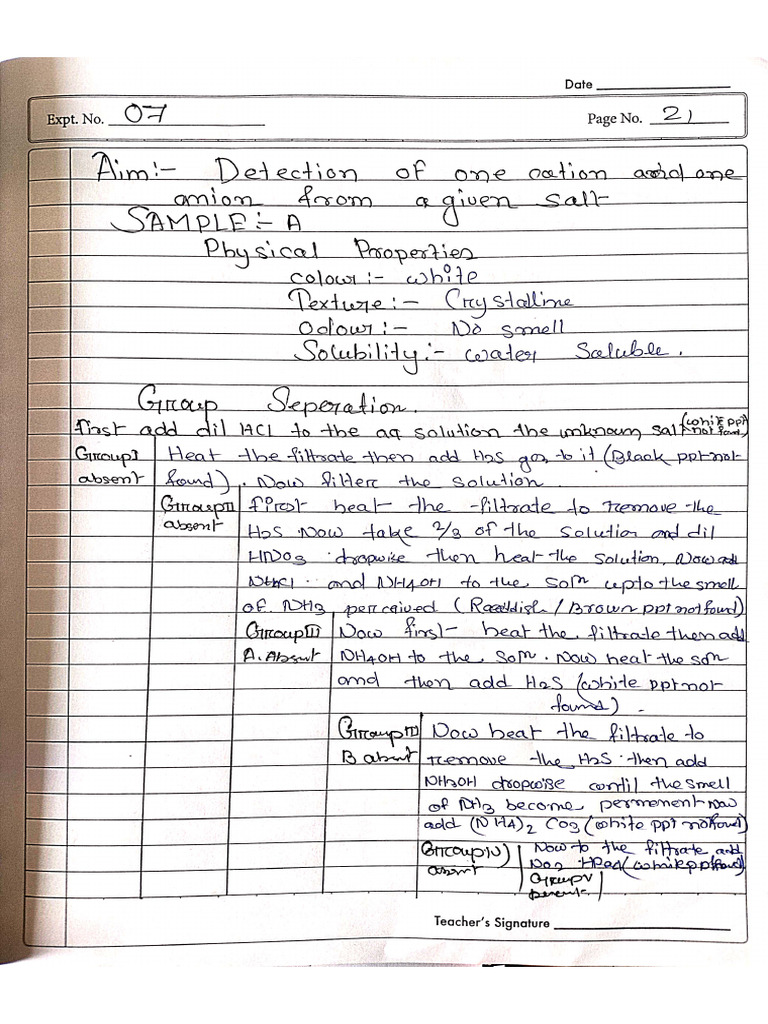 Date
Expt. No. 07
Page No. 21
Aim:- Detection of one cation and one
anion from a given salt
SAMPLE:- A
Physical Properties
Colour:- white
Texture:- Crystalline
Odour:- No smell
Solubility:- water Saluble.
Group Seperation.
first add dil HCl to the aq solution the unknown salt (white ppt not found)
Group I absent
Heat the filtrate then add H2S gas to it (Black ppt not
found). Now filter the solution.
Group II absent
first heat the filtrate to remove the
H2S. Now take 2/3 of the solution and dil
HNO3 dropwise then heat the solution. Now add
NH4Cl and NH4OH to the soln upto the smell
of NH3 percaived (Reddish/Brown ppt not found)
Group III A. Absent
Now first heat the filtrate then add
NH4OH to the soln. Now heat the soln
and then add H2S (white ppt not
found).
Group III B absent
Now heat the filtrate to
remove the H2S. then add
NH3OH dropwise until the smell
of NH3 become permenent Now
add (NH4)2 CO3 (white ppt not found)
Group IV absent
Now to the filtrate add
Na2 HPO4 (white ppt found)
Group V
Teacher's Signature